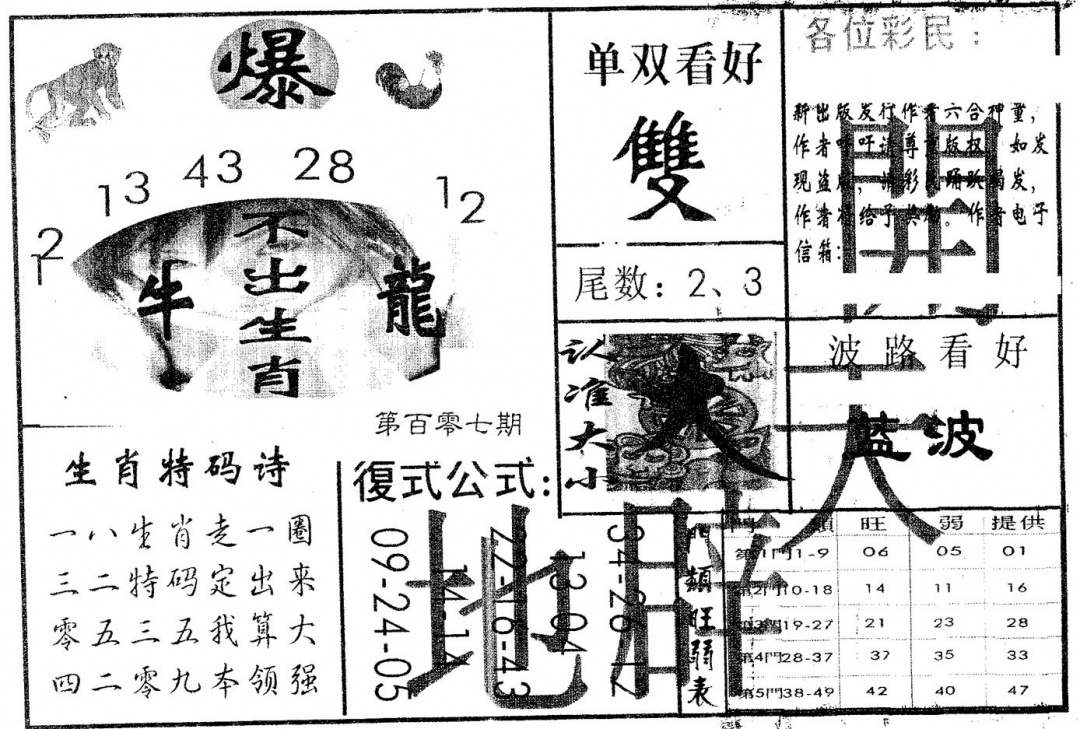 爆
12
13
43
28
12
不出生肖
牛
龍
第百零七期
单双看好
雙
尾数：2、3
认准大小
大
各位彩民：
新出版发行作者六合神童，
作者呼吁请尊重版权 如发
现盗版，请彩民踊跃揭发，
作者将给予奖励。作者电子
信箱：
波路看好
蓝波
生肖特码诗
一八生肖走一圈
三二特码定出来
零五三五我算大
四二零九本领强
復式公式：
09-24-05
14-14
22-16-43
13-04
34-26-12
門類旺弱表
門類 旺 弱 提供
第1門1-9 06 05 01
第2門10-18 14 11 16
第3門19-27 21 23 28
第4門28-37 37 35 33
第5門38-49 42 40 47